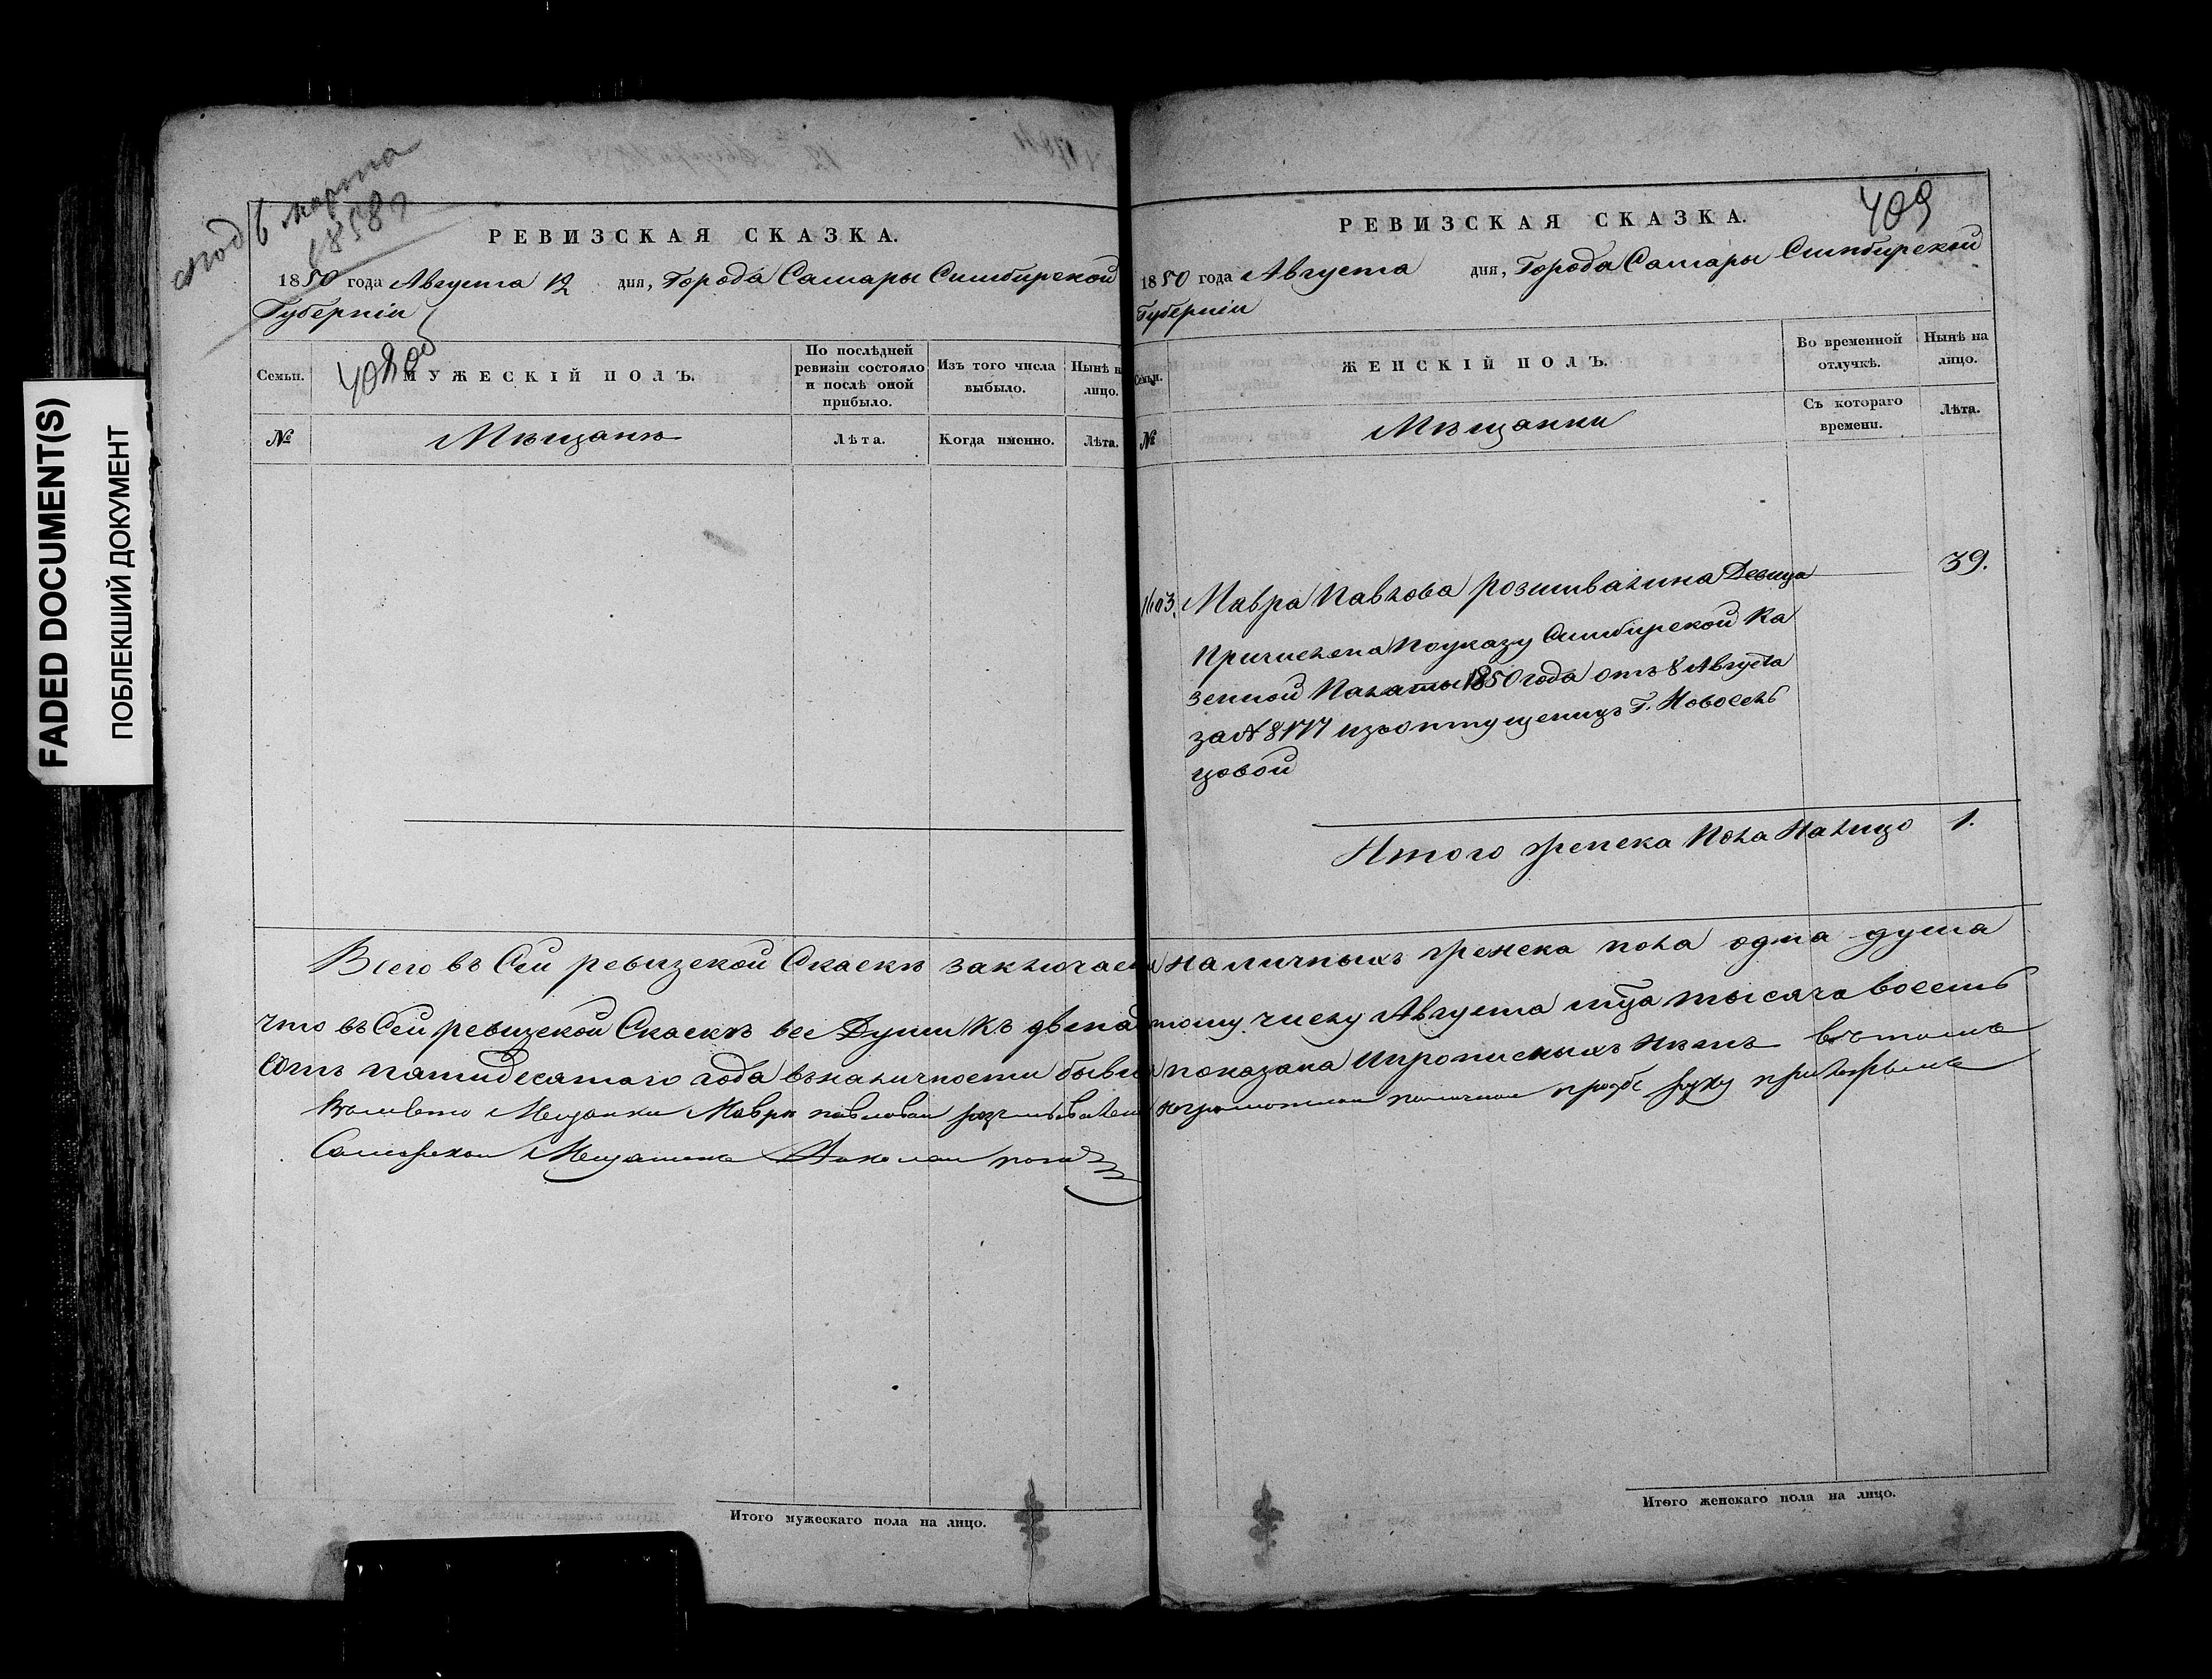 FADED DOCUMENT(S)
ПОБЛЕКШИЙ ДОКУМЕНТ
6 марта
1858 г
РЕВИЗСКАЯ СКАЗКА.
1850 года Августа 12 дня, Города Самары Симбирской
Губерніи
Семьи.
МУЖЕСКІЙ ПОЛЪ.
По послѣдней
ревизіи состояло
и послѣ оной
прибыло.
Изъ того числа
выбыло.
Нынѣ н
лицо.
№
Мѣщанѣ
Лѣта.
Когда именно.
Лѣта.
409
РЕВИЗСКАЯ СКАЗКА.
1850 года Августа дня, Города Самары Симбирской
Губерніи
Семьи.
ЖЕНСКІЙ ПОЛЪ.
Во временной
отлучкѣ.
Нынѣ на
лицо.
№
Мѣщанки
Съ котораго
времени.
Лѣта.
1103. Мавра Павлова розшивалина Девица 39.
Причислена поуказу Симбирской Ка
зенной Палаты 1850 года отъ 8 Августа
за № 8177 изъ отпущеницъ Г. Новосель
цовой
Итого женска пола налицо 1.
Всего въ Сей ревизской Скаскѣ заключает наличныхъ женска пола одна душа
что въ Сей ревизской Скаскѣ все Души къ двенад тому числу Августа мца тысяча восемь
сотъ пятидесятаго года въналичности бывш показана ипрописныхъ нѣтъ вътомъ
Вместо Мещанки Мавры павловой розшивалин неграмотной поличной прозбе руку приложилъ
Самарской Мещанинъ Николай
Итого мужескаго пола на лицо.
Итого женскаго пола на лицо.